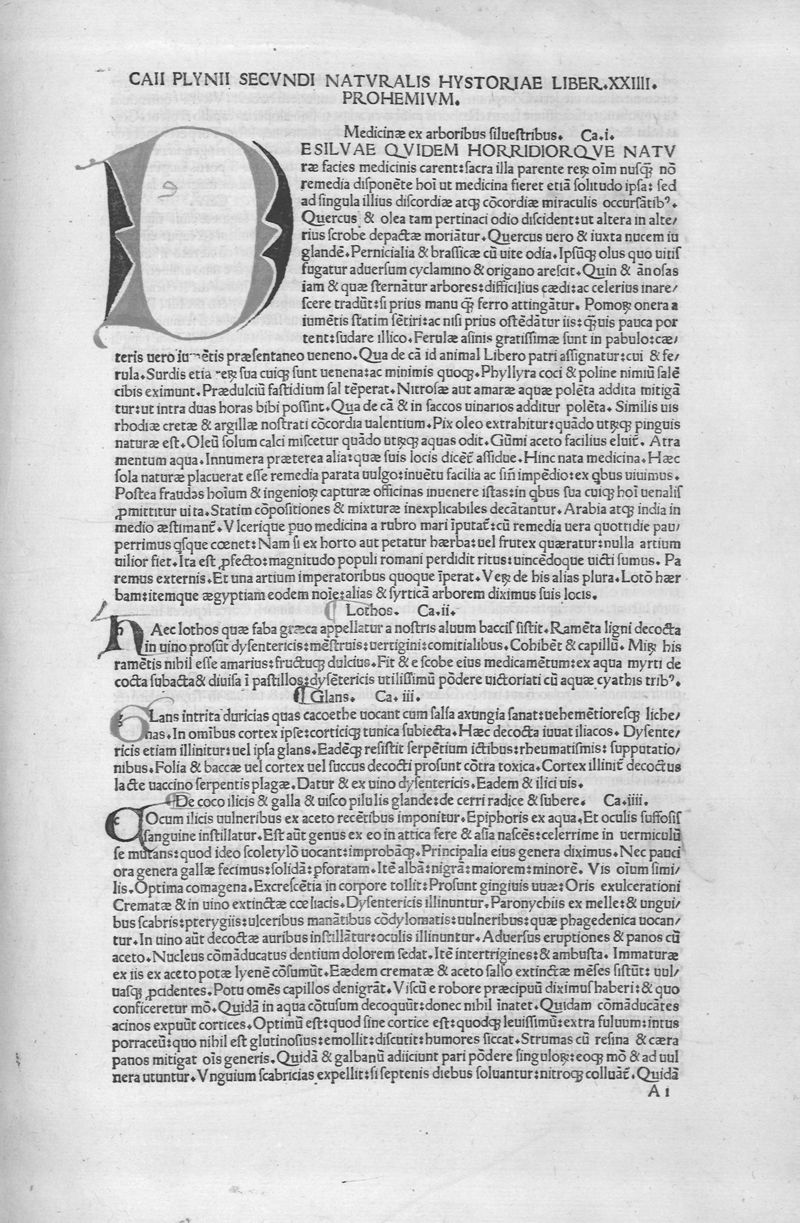 CAII PLYNII SECVNDI NATVRALIS HYSTORIAE LIBER.XXIIII.
PROHEMIVM.
Medicinæ ex arboribus ſilueſtribus. Ca.i.
DESILVAE QVIDEM HORRIDIORQVE NATV
ræ facies medicinis carent:ſacra illa parente reꝝ oīm nuſꝗ̄ nō
remedia diſponēte hoī ut medicina fieret etiā ſolitudo ipſa: ſed
ad ſingula illius diſcordiæ atqꝫ cōcordiæ miraculis occurſātibꝰ.
Quercus & olea tam pertinaci odio diſcident:ut altera in alte/
rius ſcrobe depactæ moriātur.Quercus uero & iuxta nucem iu
glandē.Pernicialia & braſſicæ cū uite odia.Ipſūqꝫ olus quo uitiſ
fugatur aduerſum cyclamino & origano areſcit.Quin & ānoſas
iam & quæ ſternātur arbores:difficilius cædi:ac celerius inare/
ſcere tradūt:ſi prius manu ꝗ̄ ferro attingātur. Pomoꝝ onera a
iumētis ſtatim ſētiri:ac niſi prius oſtēdātur iis:ꝗ̄uis pauca por
tent:ſudare illico. Ferulæ aſinis gratiſſimæ ſunt in pabulo:cæ/
teris uero iumētis præſentaneo ueneno. Qua de cā id animal Libero patri aſſignatur:cui & fe/
rula. Surdis etia reꝝ ſua cuiqꝫ ſunt uenena:ac minimis quoqꝫ. Phyllyra coci & poline nimiū ſalē
cibis eximunt. Prædulciū faſtidium ſal tēperat. Nitroſæ aut amaræ aquæ polēta addita mitigā
tur:ut intra duas horas bibi poſſint. Qua de cā & in ſaccos uinarios additur polēta. Similis uis
rhodiæ cretæ & argillæ noſtrati cōcordia ualentium. Pix oleo extrahitur:quādo utrꝫqꝫ pinguis
naturæ eſt. Oleū ſolum calci miſcetur quādo utrꝫqꝫ aquas odit. Gūmi aceto facilius eluit̄. Atra
mentum aqua. Innumera præterea alia:quæ ſuis locis dicēt̄ aſſidue. Hinc nata medicina. Hæc
ſola naturæ placuerat eſſe remedia parata uulgo:inuētu facilia ac ſiñ impēdio:ex qbus uiuimus.
Poſtea fraudas hoīum & ingenioꝝ capturæ officinas inuenere iſtas:in qbus ſua cuiqꝫ hoī uenaliſ
ꝓmittitur uita. Statim cōpoſitiones & mixturæ inexplicabiles decātantur. Arabia atqꝫ india in
medio æſtimant̄. Vlceriqꝫ puo medicina a rubro mari īputat̄:cū remedia uera quottidie pau/
perrimus qſqꝫ cœnet: Nam ſi ex horto aut petatur hærba:uel frutex quæratur:nulla artium
uilior fiet. Ita eſt ꝓfecto:magnitudo populi romani perdidit ritus:uincēdoqꝫ uicti ſumus. Pa
remus externis. Et una artium imperatoribus quoqꝫ īperat. Veꝝ de his alias plura. Lotō hær
bam:itemqꝫ ægyptiam eodem noīe:alias & ſyrticā arborem diximus ſuis locis.
Lothos. Ca.ii.
HAec lothos quæ faba græca appellatur a noſtris aluum bacciſ ſiſtit. Ramēta ligni decocta
in uino proſūt dyſentericis:mēſtruis:uertigini:comitialibus. Cohibēt & capillū. Miꝝ his
ramētis nihil eſſe amarius:fructuqꝫ dulcius. Fit & e ſcobe eius medicamētum:ex aqua myrti de
cocta ſubacta & diuiſa ī paſtillos:dyſētericis utiliſſimū pōdere uictoriati cū aquæ cyathis tribꝰ.
¶ Glans. Ca. iii.
GLans intrita duricias quas cacoethe uocant cum ſalſa axungia ſanat:uehemētioreſqꝫ liche/
nas. In omībus cortex ipſe:corticiqꝫ tunica ſubiecta. Hæc decocta iuuat iliacos. Dyſente/
ricis etiam illinitur:uel ipſa glans. Eadēqꝫ reſiſtit ſerpētium ictibus:rheumatiſmis: ſupputatio/
nibus. Folia & baccæ uel cortex uel ſuccus decocti proſunt cōtra toxica. Cortex illinit̄ decoctus
lacte uaccino ſerpentis plagæ. Datur & ex uino dyſentericis. Eadem & ilici uis.
De coco ilicis & galla & uiſco pilulis glande:de cerri radice & ſubere. Ca.iiii.
COcum ilicis uulneribus ex aceto recētibus imponitur. Epiphoris ex aqua. Et oculis ſuffoſiſ
ſanguine inſtillatur. Eſt aūt genus ex eo in attica fere & aſia naſcēs:celerrime in uermiculū
ſe mutans:quod ideo ſcoletylō uocant:improbāqꝫ. Principalia eius genera diximus. Nec pauci
ora genera gallæ fecimus:ſolidā:pforatam. Itē albā:nigrā:maiorem:minorē. Vis oīum ſimi/
lis. Optima comagena. Excreſcētia in corpore tollit: Proſunt gingiuis uuæ: Oris exulcerationi
Crematæ & in uino extinctæ cœliacis. Dyſentericis illinuntur. Paronychiis ex melle:& ungui/
bus ſcabris:pterygiis:ulceribus manātibus cōdylomatis:uulneribus:quæ phagedenica uocan/
tur. In uino aūt decoctæ auribus inſtillātur:oculis illinuntur. Aduerſus eruptiones & panos cū
aceto. Nucleus cōmāducatus dentium dolorem ſedat. Itē intertrigines:& ambuſta. Immaturæ
ex iis ex aceto potæ lyenē cōſumūt. Eædem crematæ & aceto ſalſo extinctæ mēſes ſiſtūt: uul/
uaſqꝫ ꝓcidentes. Potu omēs capillos denigrāt. Viſcū e robore præcipuū diximuſ haberi: & quo
conficeretur mō. Quidā in aqua cōtuſum decoquūt:donec nihil īnatet. Quidam cōmāducātes
acinos expuūt cortices. Optimū eſt:quod ſine cortice eſt:quodqꝫ leuiſſimū:extra fuluum:intus
porraceū:quo nihil eſt glutinoſius:emollit:diſcutit:humores ſiccat. Strumas cū reſina & cæra
panos mitigat oīs generis. Quidā & galbanū adiiciunt pari pōdere ſinguloꝝ:eoqꝫ mō & ad uul
nera utuntur. Vnguium ſcabricias expellit:ſi ſeptenis diebus ſoluantur:nitroqꝫ colluāt̄. Quidā
A 1